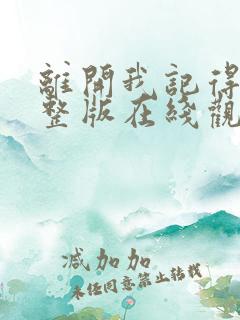 離開我記得
整版在綫觀
减加加
未经同意禁止转载